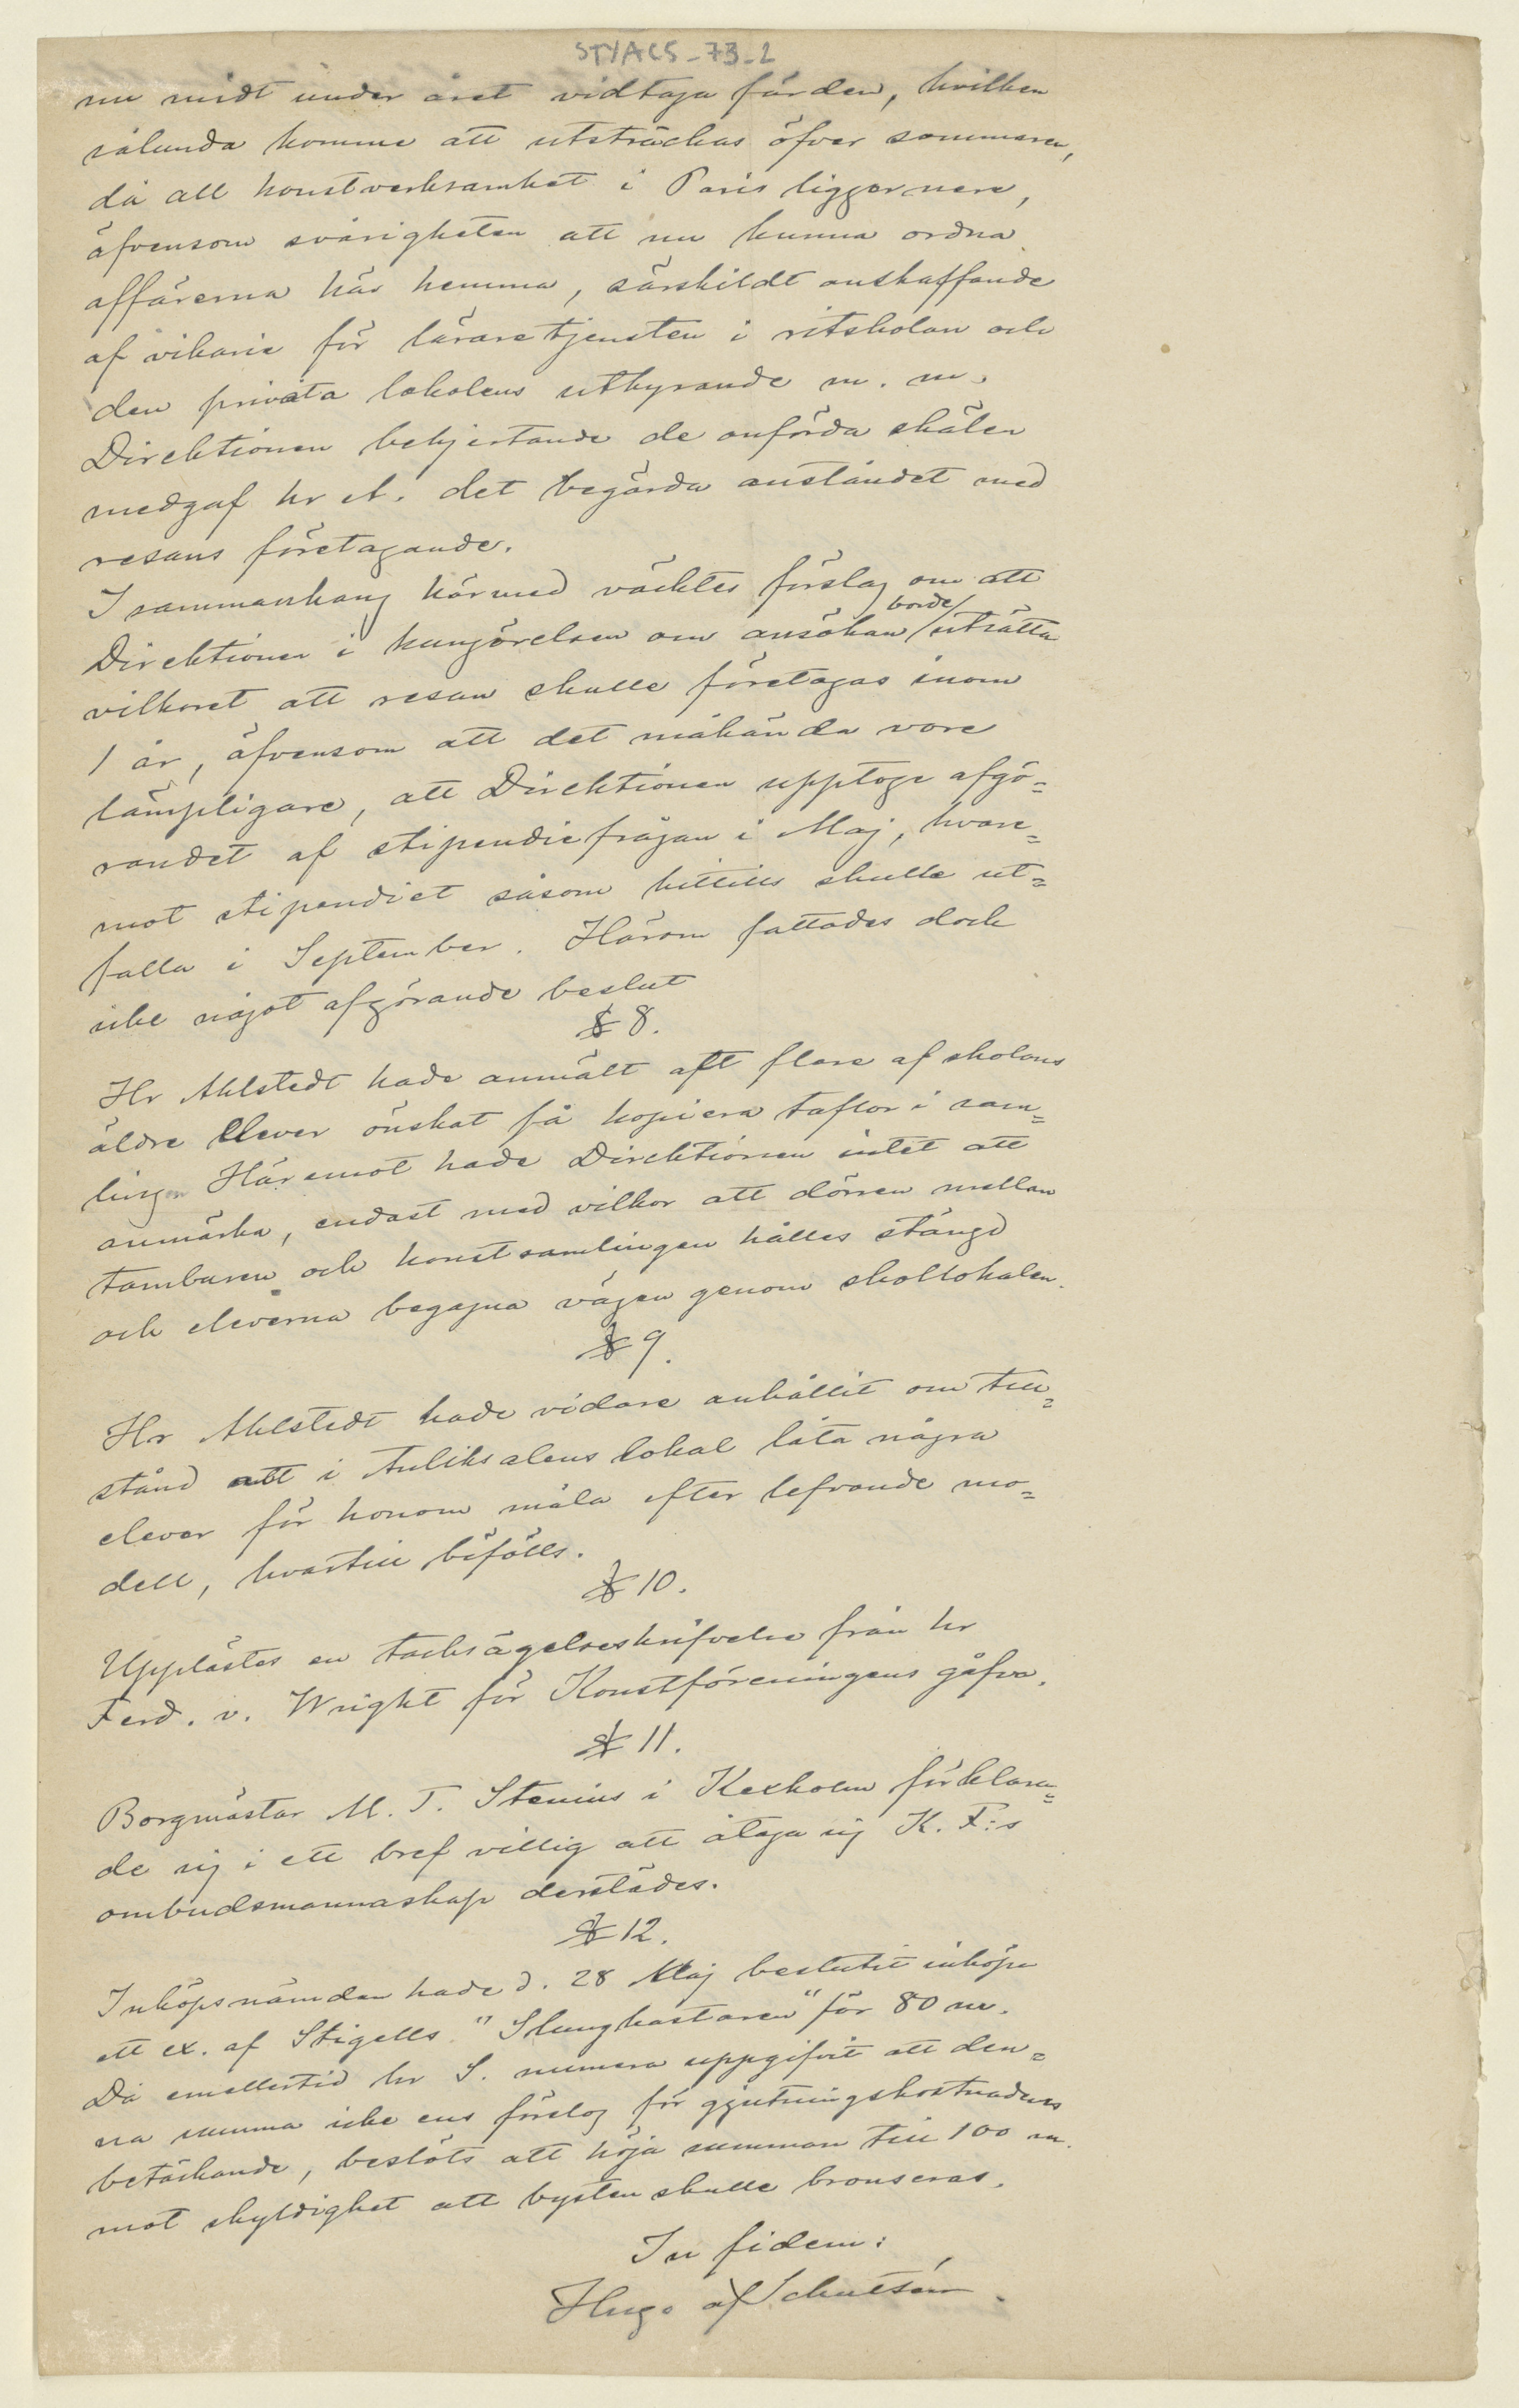 STYACS-73-2
nu midt under året vidtaga färden, hvilken
sålunda komme att utsträckas öfver sommaren,
då all konstverksamhet i Paris ligger nere,
äfvensom svårigheten att nu kunna ordna
affärerna här hemma, särskildt anskaffande
af vikarie för läraretjensten i ritskolan och
den privata lokalens uthyrande m. m.
Direktionen behjertande de anförda skälen
medgaf hr A. det begärda anståndet med
resans företagande.
I sammanhang härmed väcktes förslag om att
Direktionen i kungörelsen om ansökan borde utsätta
vilkoret att resan skulle företagas inom
1 år, äfvensom att det måhända vore
lämpligare, att Direktionen upptoge afgö=
randet af stipendiefrågan i Maj, hvare=
mot stipendiet såsom hittills skulle ut=
falla i September. Härom fattades dock
icke något afgörande beslut
§ 8.
Hr Ahlstedt hade anmält att flere af skolans
äldre elever önskat få kopiera taflor i sam=
lingen Häremot hade Direktionen intet att
anmärka, endast med vilkor att dörren mellan
tamburen och konstsamlingen hålles stängd
och eleverna begagna vägen genom skollokalen.
§ 9.
Hr Ahlstedt hade vidare anhållit om till=
stånd att i Antiksalens lokal låta några
elever för honom måla efter lefvande mo=
dell, hvartill bifölls.
§ 10.
Upplästes en tacksägelseskrifvelse från hr
Ferd. v. Wright för Konstföreningens gåfva.
§ 11.
Borgmästar M. T. Stenius i Kexholm förklara=
de sig i ett bref villig att åtaga sig K. F:s
ombudsmannaskap derstädes.
§ 12.
Inköpsnämden hade d. 28 Maj beslutit inköpa
ett ex. af Stigells "Slungkastaren" för 80 m.
Då emellertid hr S. numera uppgifvit att den=
na summa icke ens försloge för gjutningskostnadens
betäckande, beslöts att höja summan till 100 m.
mot skyldighet att bysten skulle bronseras.
In fidem:
Hugo af Schultén.